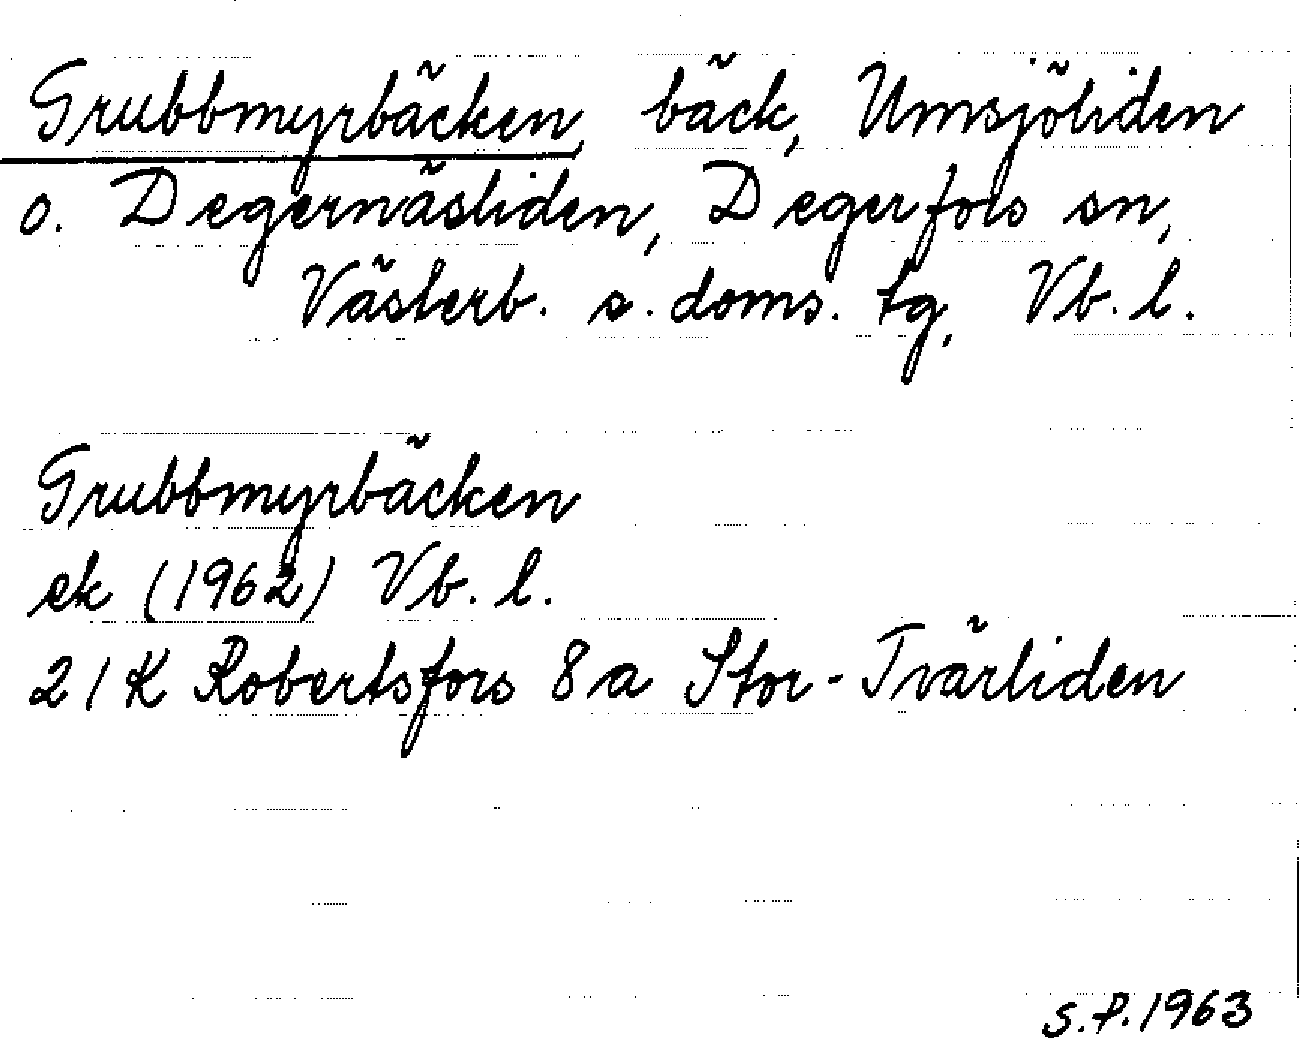 Grubbmyrbäcken, bäck, Umsjöliden
o. Degernäsliden, Degerfors sn,
Västerb. s. doms. tg, Vb. l.
Grubbmyrbäcken
ek (1962) Vb. l.
21K Robertsfors 8a Stor-Tvärliden
S.P. 1963